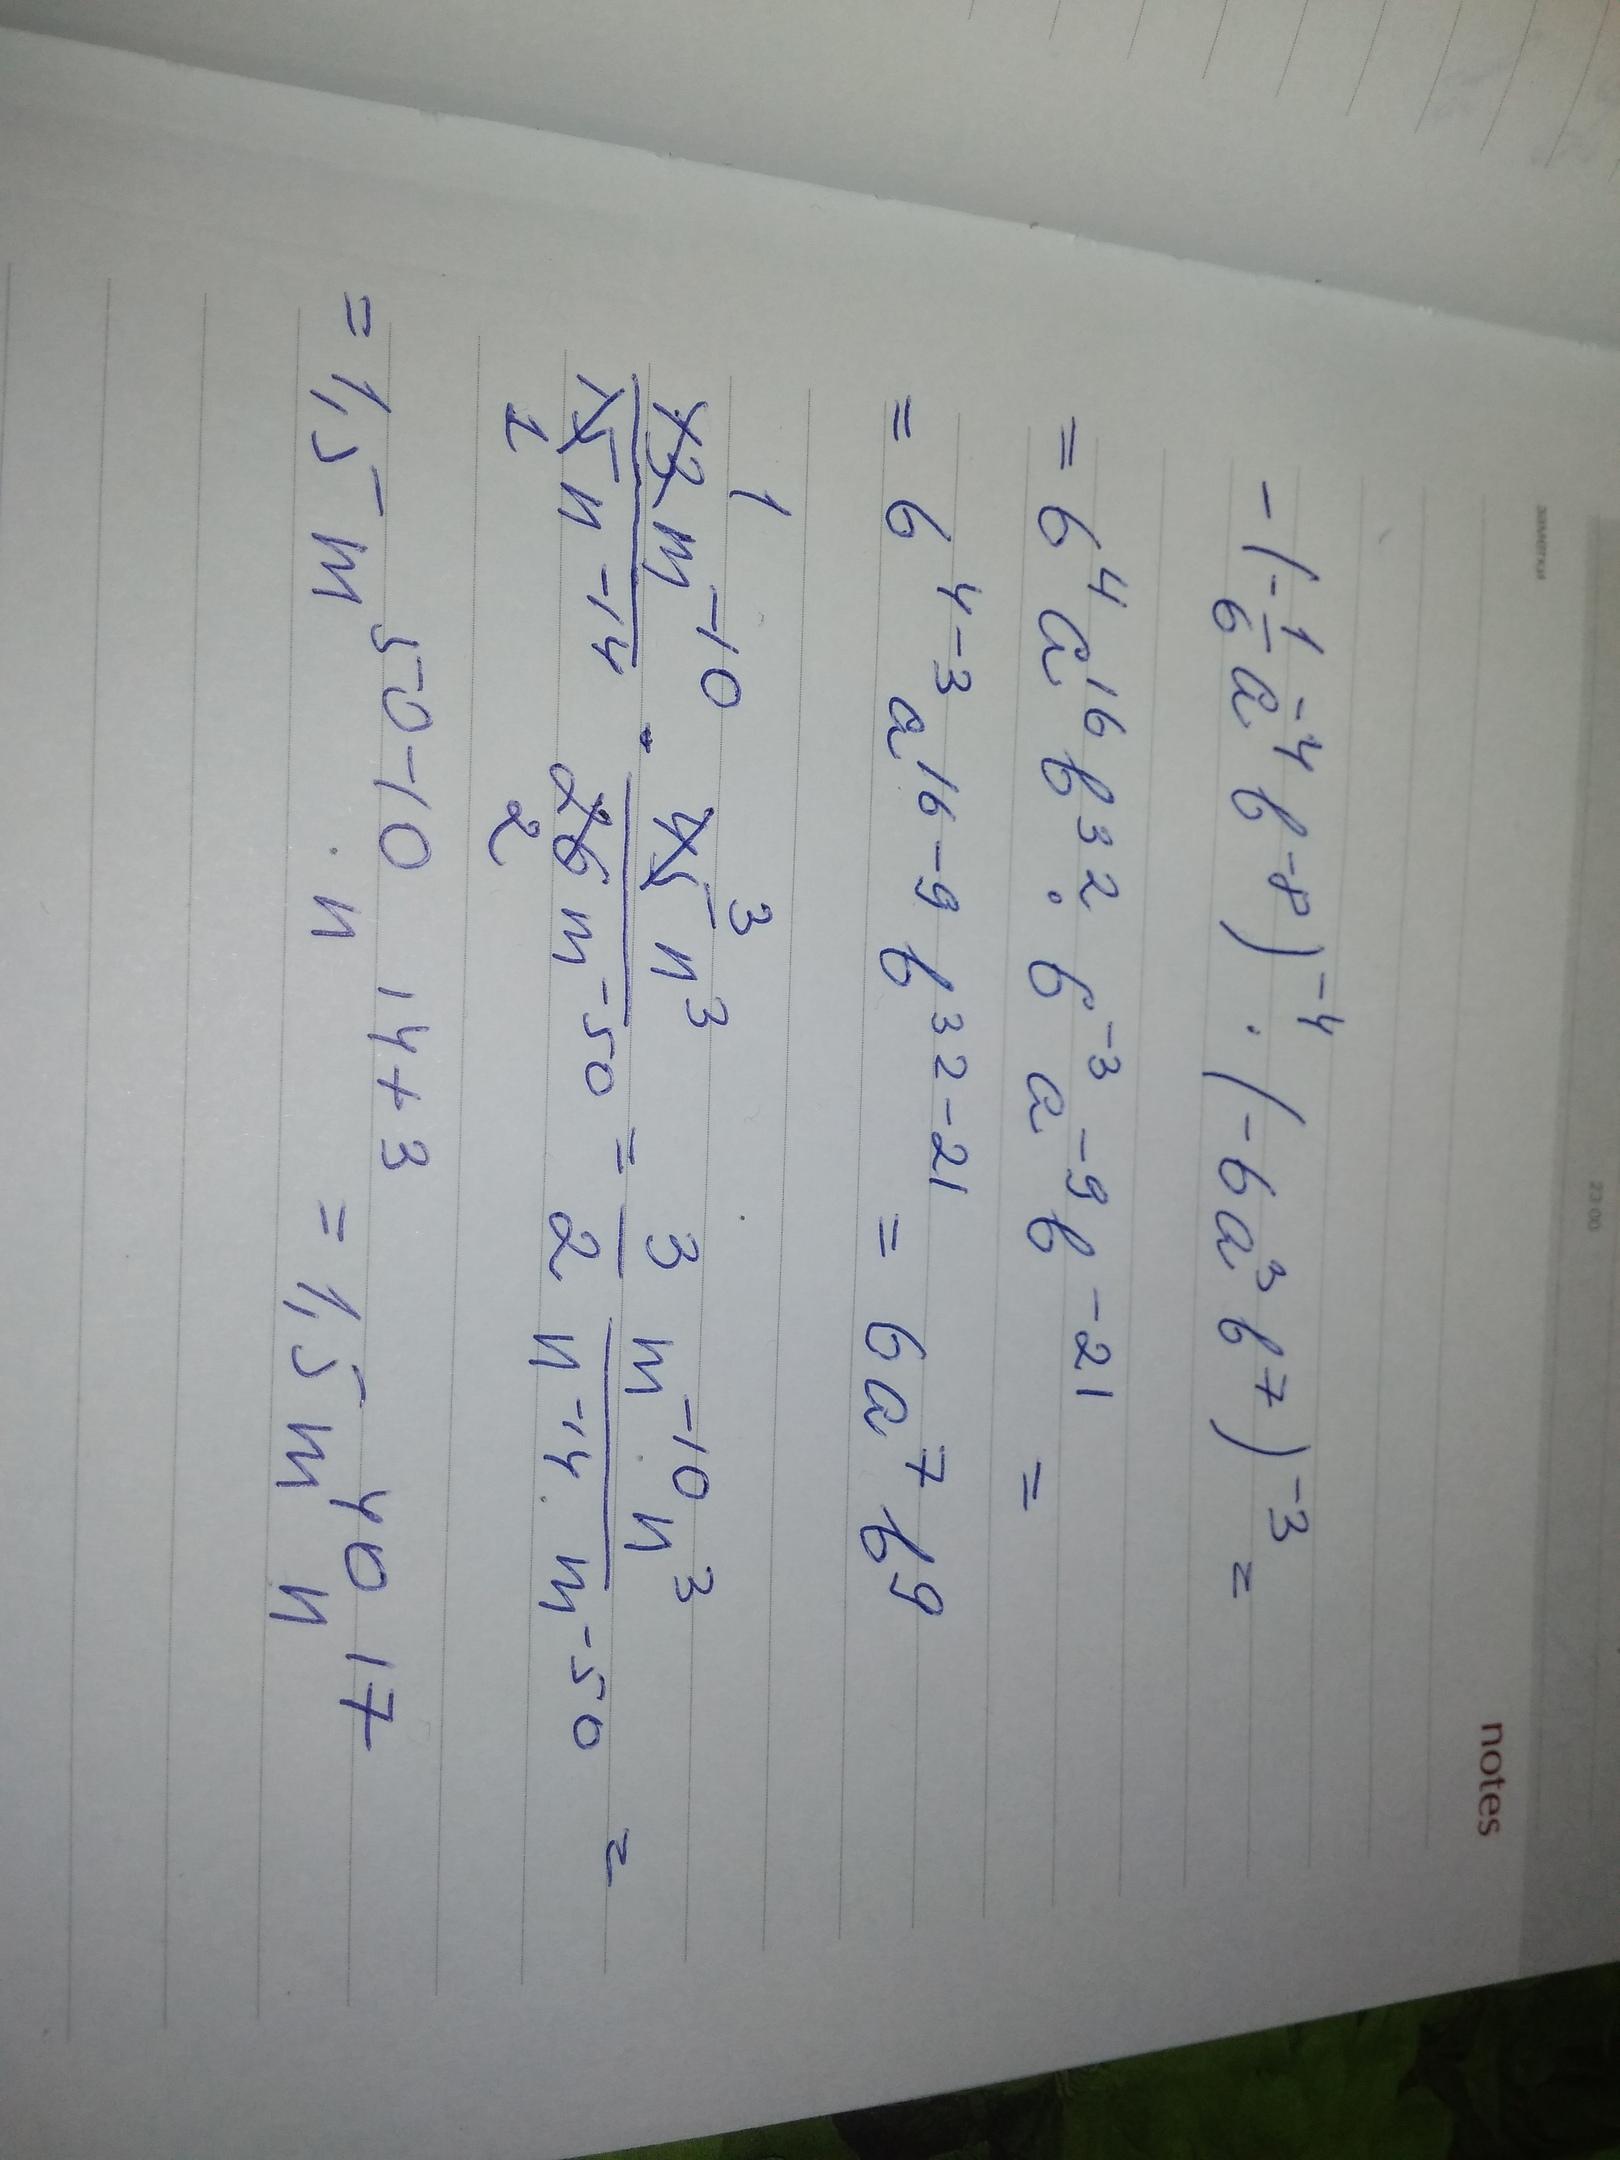 notes
23:00
-(-1/6 a⁻⁴ b⁻⁸)⁻⁴ · (-6a³b⁷)⁻³ =
= 6⁴ a¹⁶ b³² · 6⁻³ a⁻⁹ b⁻²¹ =
= 6⁴⁻³ a¹⁶⁻⁹ b³²⁻²¹ = 6a⁷b⁹
1 3
13m⁻¹⁰/15n⁻¹⁴ · 45n³/26m⁻⁵⁰ = 3/2 m⁻¹⁰n³/n⁻¹⁴·m⁻⁵⁰ =
1 2
= 1,5m⁵⁰⁻¹⁰ · n¹⁴⁺³ = 1,5m⁴⁰n¹⁷